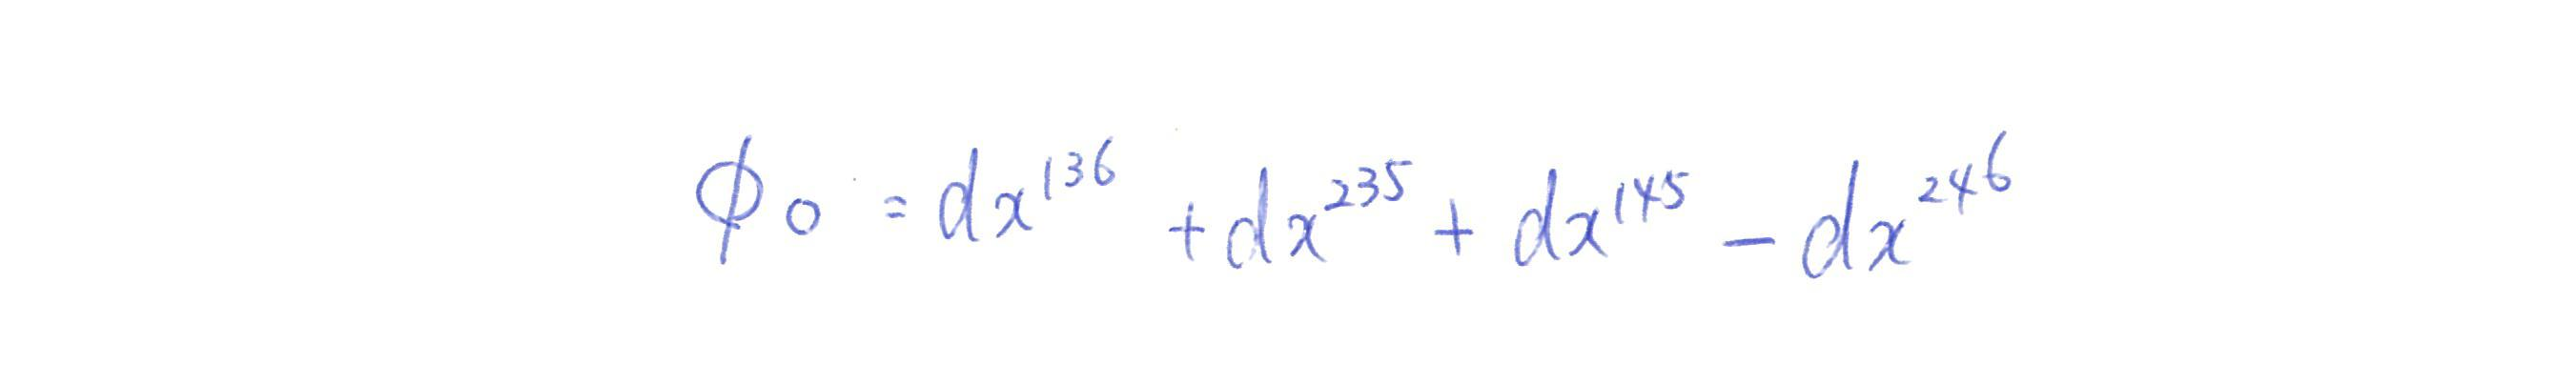 ϕ₀ = dx¹³⁶ + dx²³⁵ + dx¹⁴⁵ − dx²⁴⁶